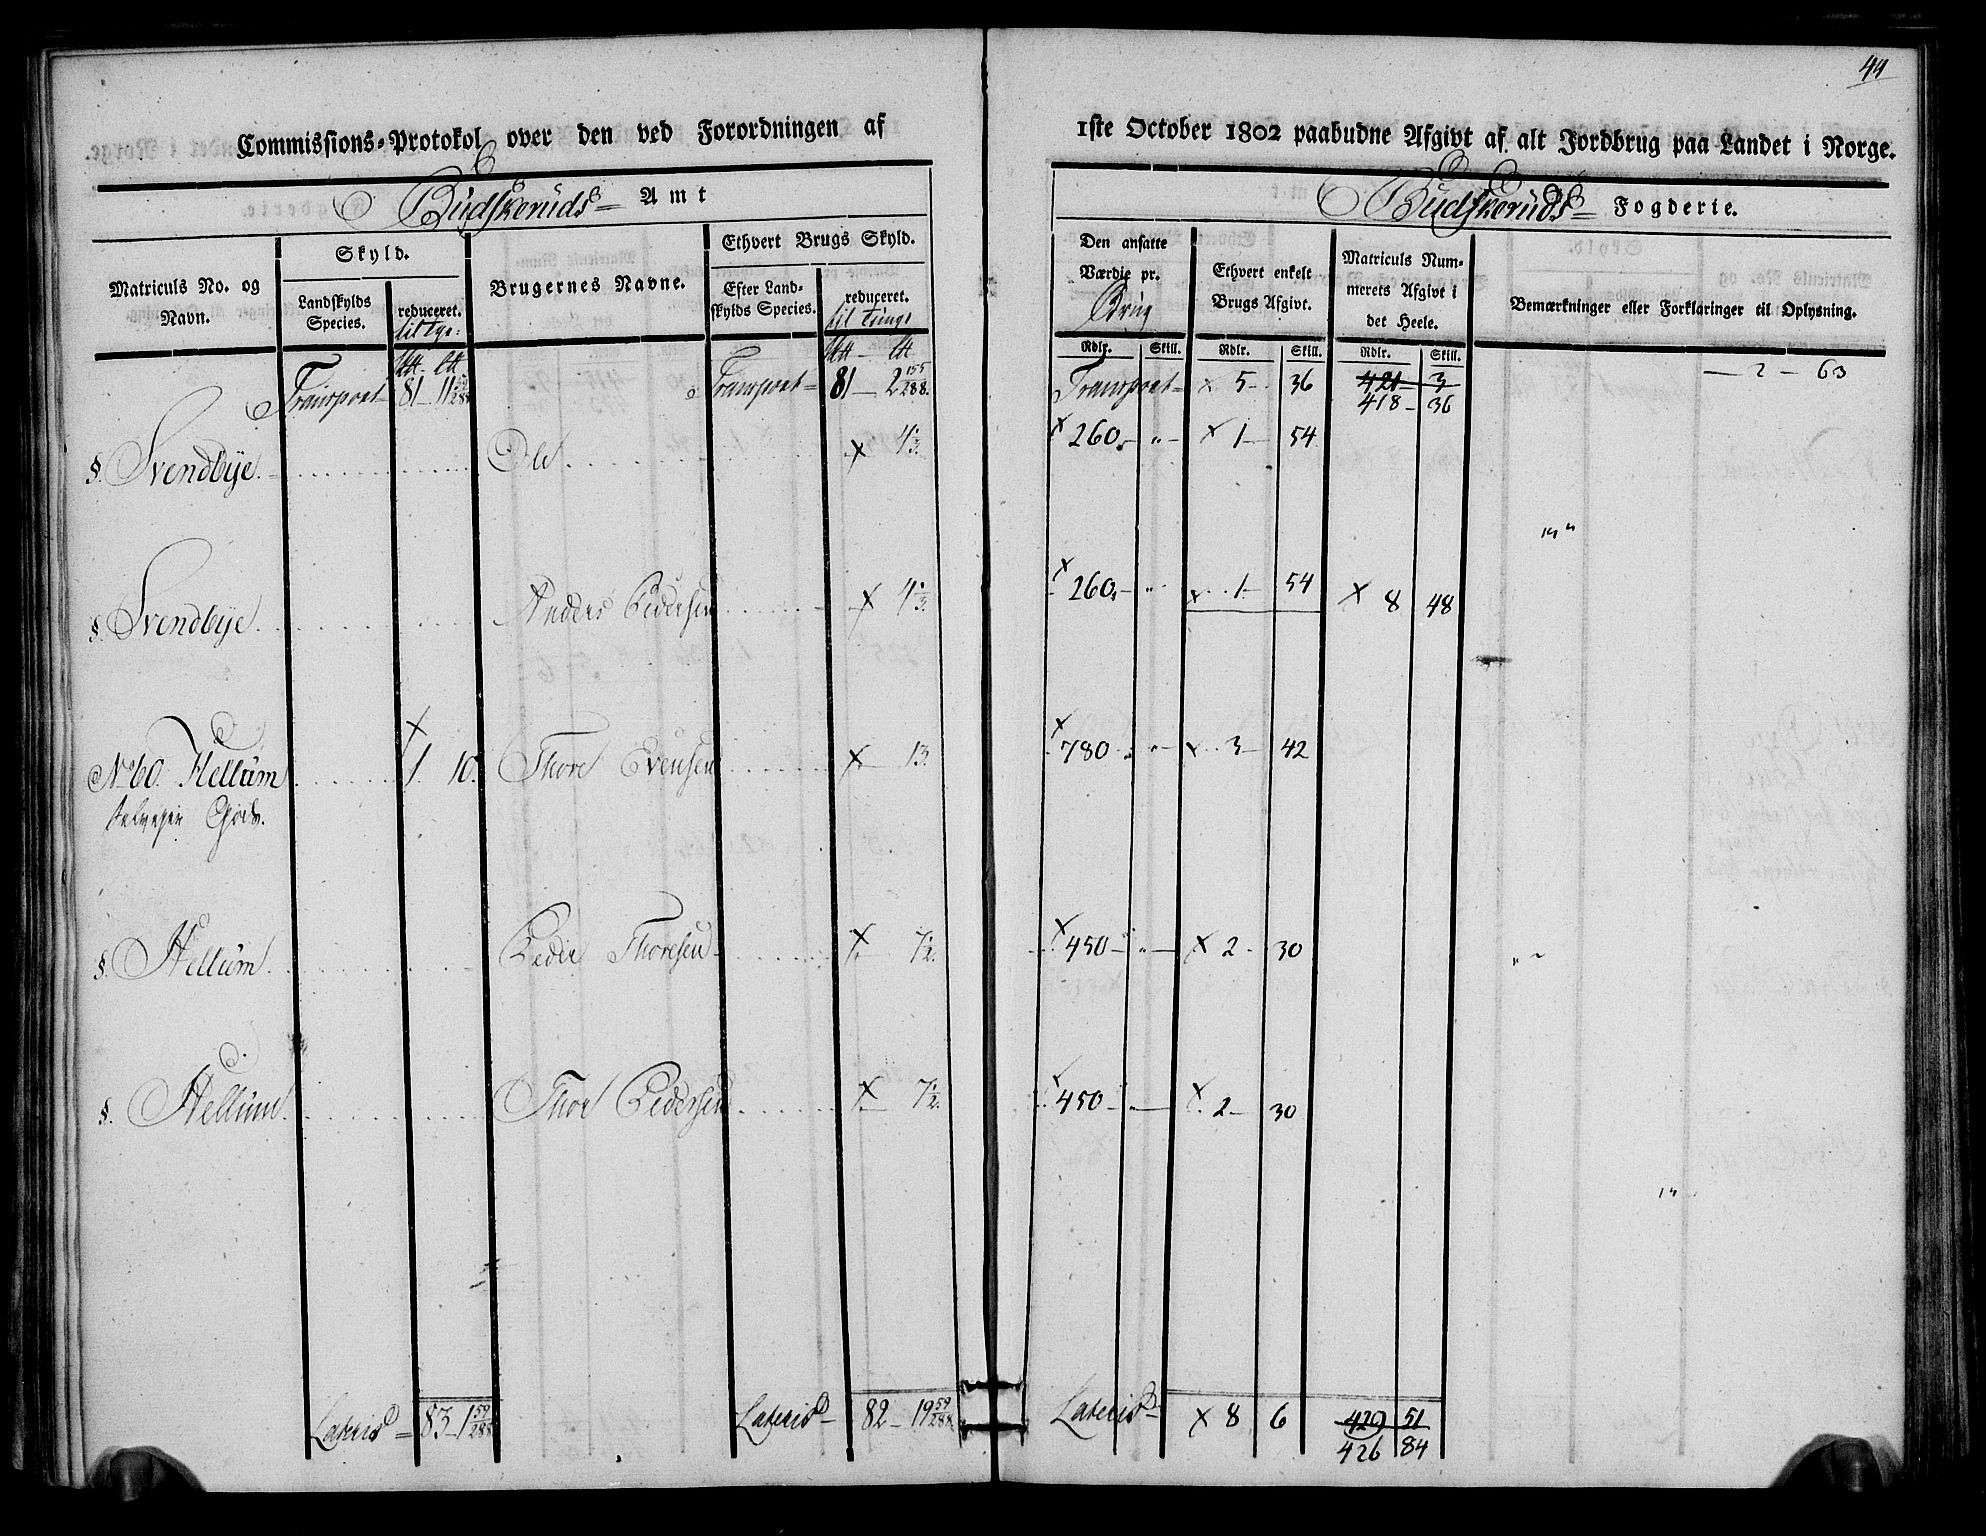 44
Commissions-Protokol over den ved Forordningen af 1ste October 1802 paabudne Afgivt af alt Jordbrug paa Landet i Norge.
Budskeruds Amt
Budskeruds Fogderie.
Matriculs No. og Navn.
Skyld.
Landskylds Species.
reduceret.
Brugernes Navne.
Ethvert Brugs Skyld.
Efter Landskylds Species.
reduceret. til Tunge
Den ansatte Værdie pr. Brug
Rdlr. Skill.
Ethvert enkelt Brugs Afgivt.
Rdlr. Skill.
Matriculs Nummerets Afgivt i det Heele.
Rdlr. Skill.
Bemærkninger eller Forklaringer til Oplysning.
Transport 81 11 59/288 Transport 81 2 155/288. Transport x 5 36 421 3 2 63
418 36
§. Svendbye Ole x 4 1/3. x 260 " x 1 54
§. Svendbye Anders Pedersen x 4 1/3. x 260 " x 1 54 x 8 48
No 60. Hellum x 1 10. Thore Evensen x 13. x 780 " x 3 42
Selveyer Gods.
§. Hellum Peder Thoresen x 7 1/2. x 450 " x 2 30
§. Hellum Thor Pedersen x 7 1/2. x 450 " x 2 30
Lateris 83 1 59/288 Lateris 82 19 59/288. Lateris x 8 6 429 51
426 84